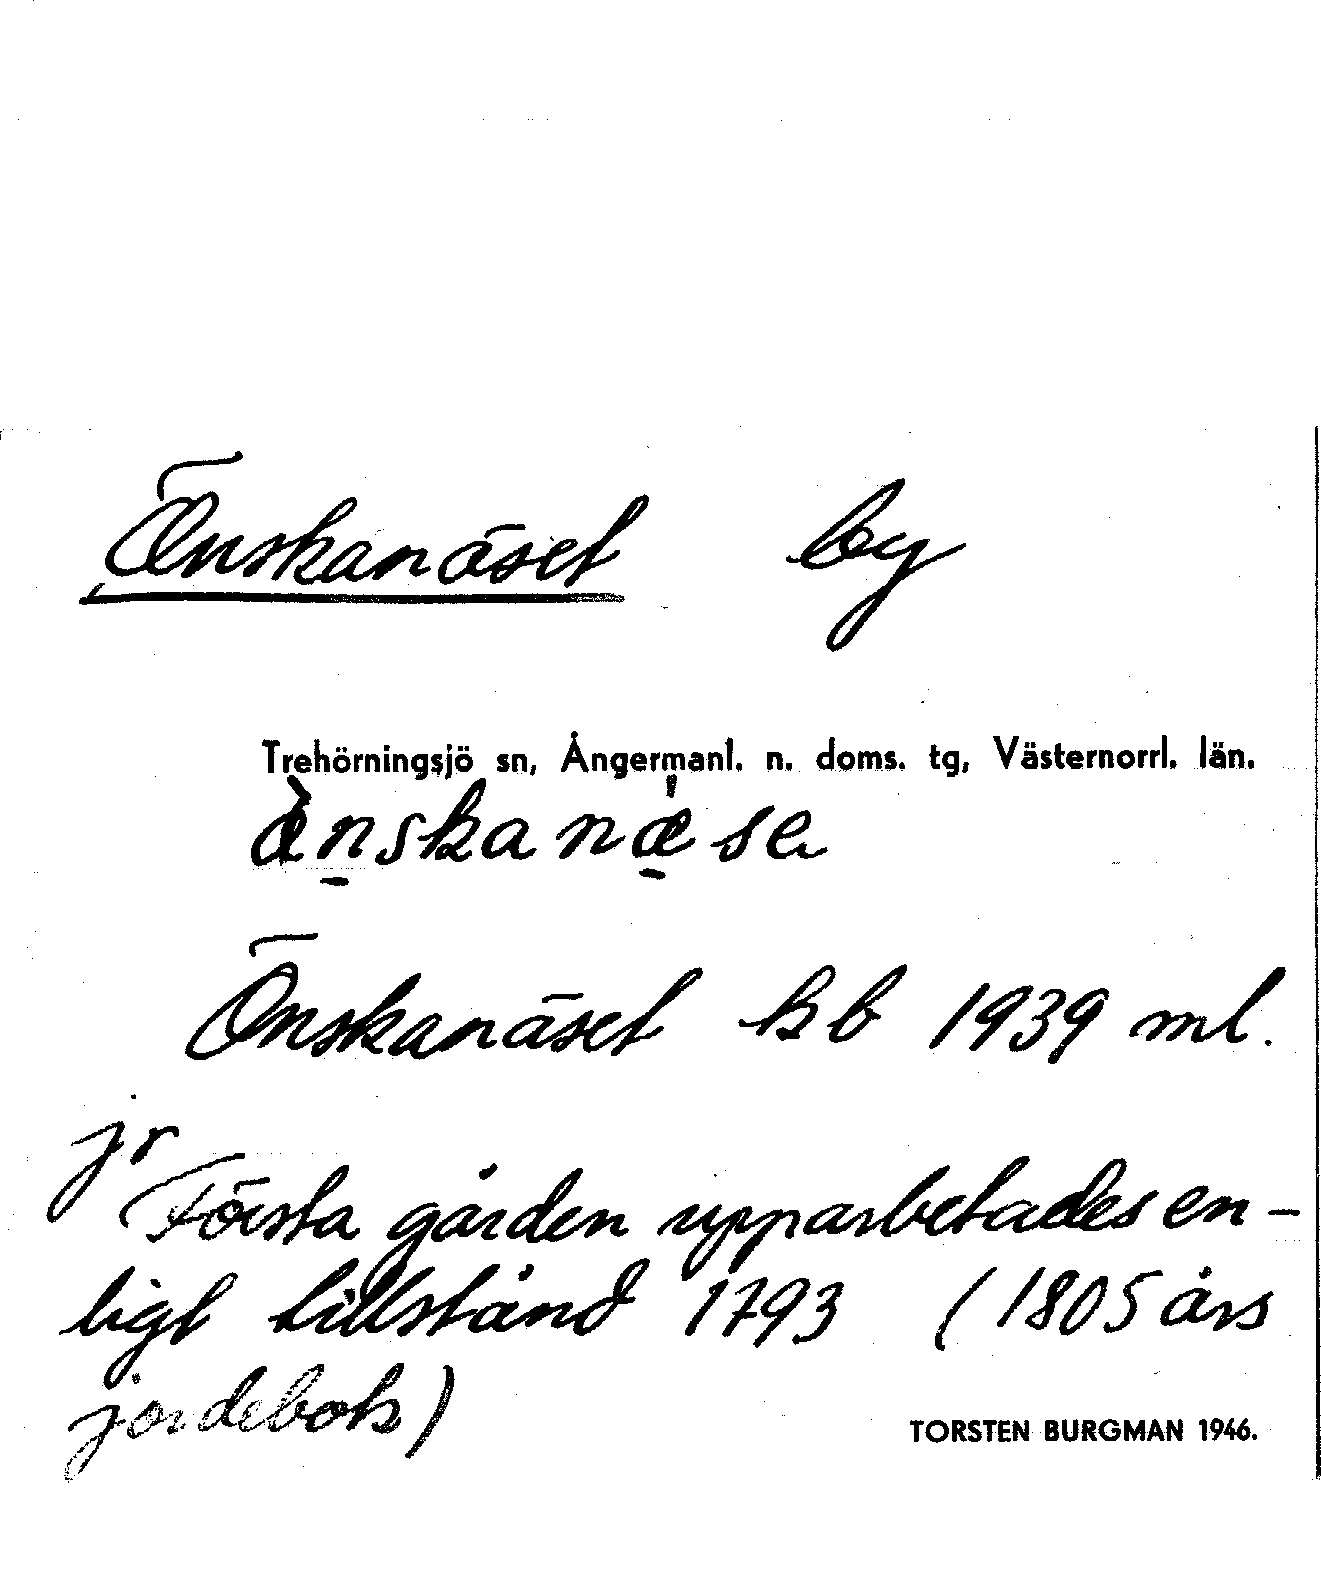 Önskanäset by
Trehörningsjö sn, Ångermanl. n. doms. tg, Västernorrl. län.
Önskanäset kb 1939 ml.
jr
Första gården upparbetades en-
ligt tillstånd 1793 (1805 års
jordebok)
TORSTEN BURGMAN 1946.